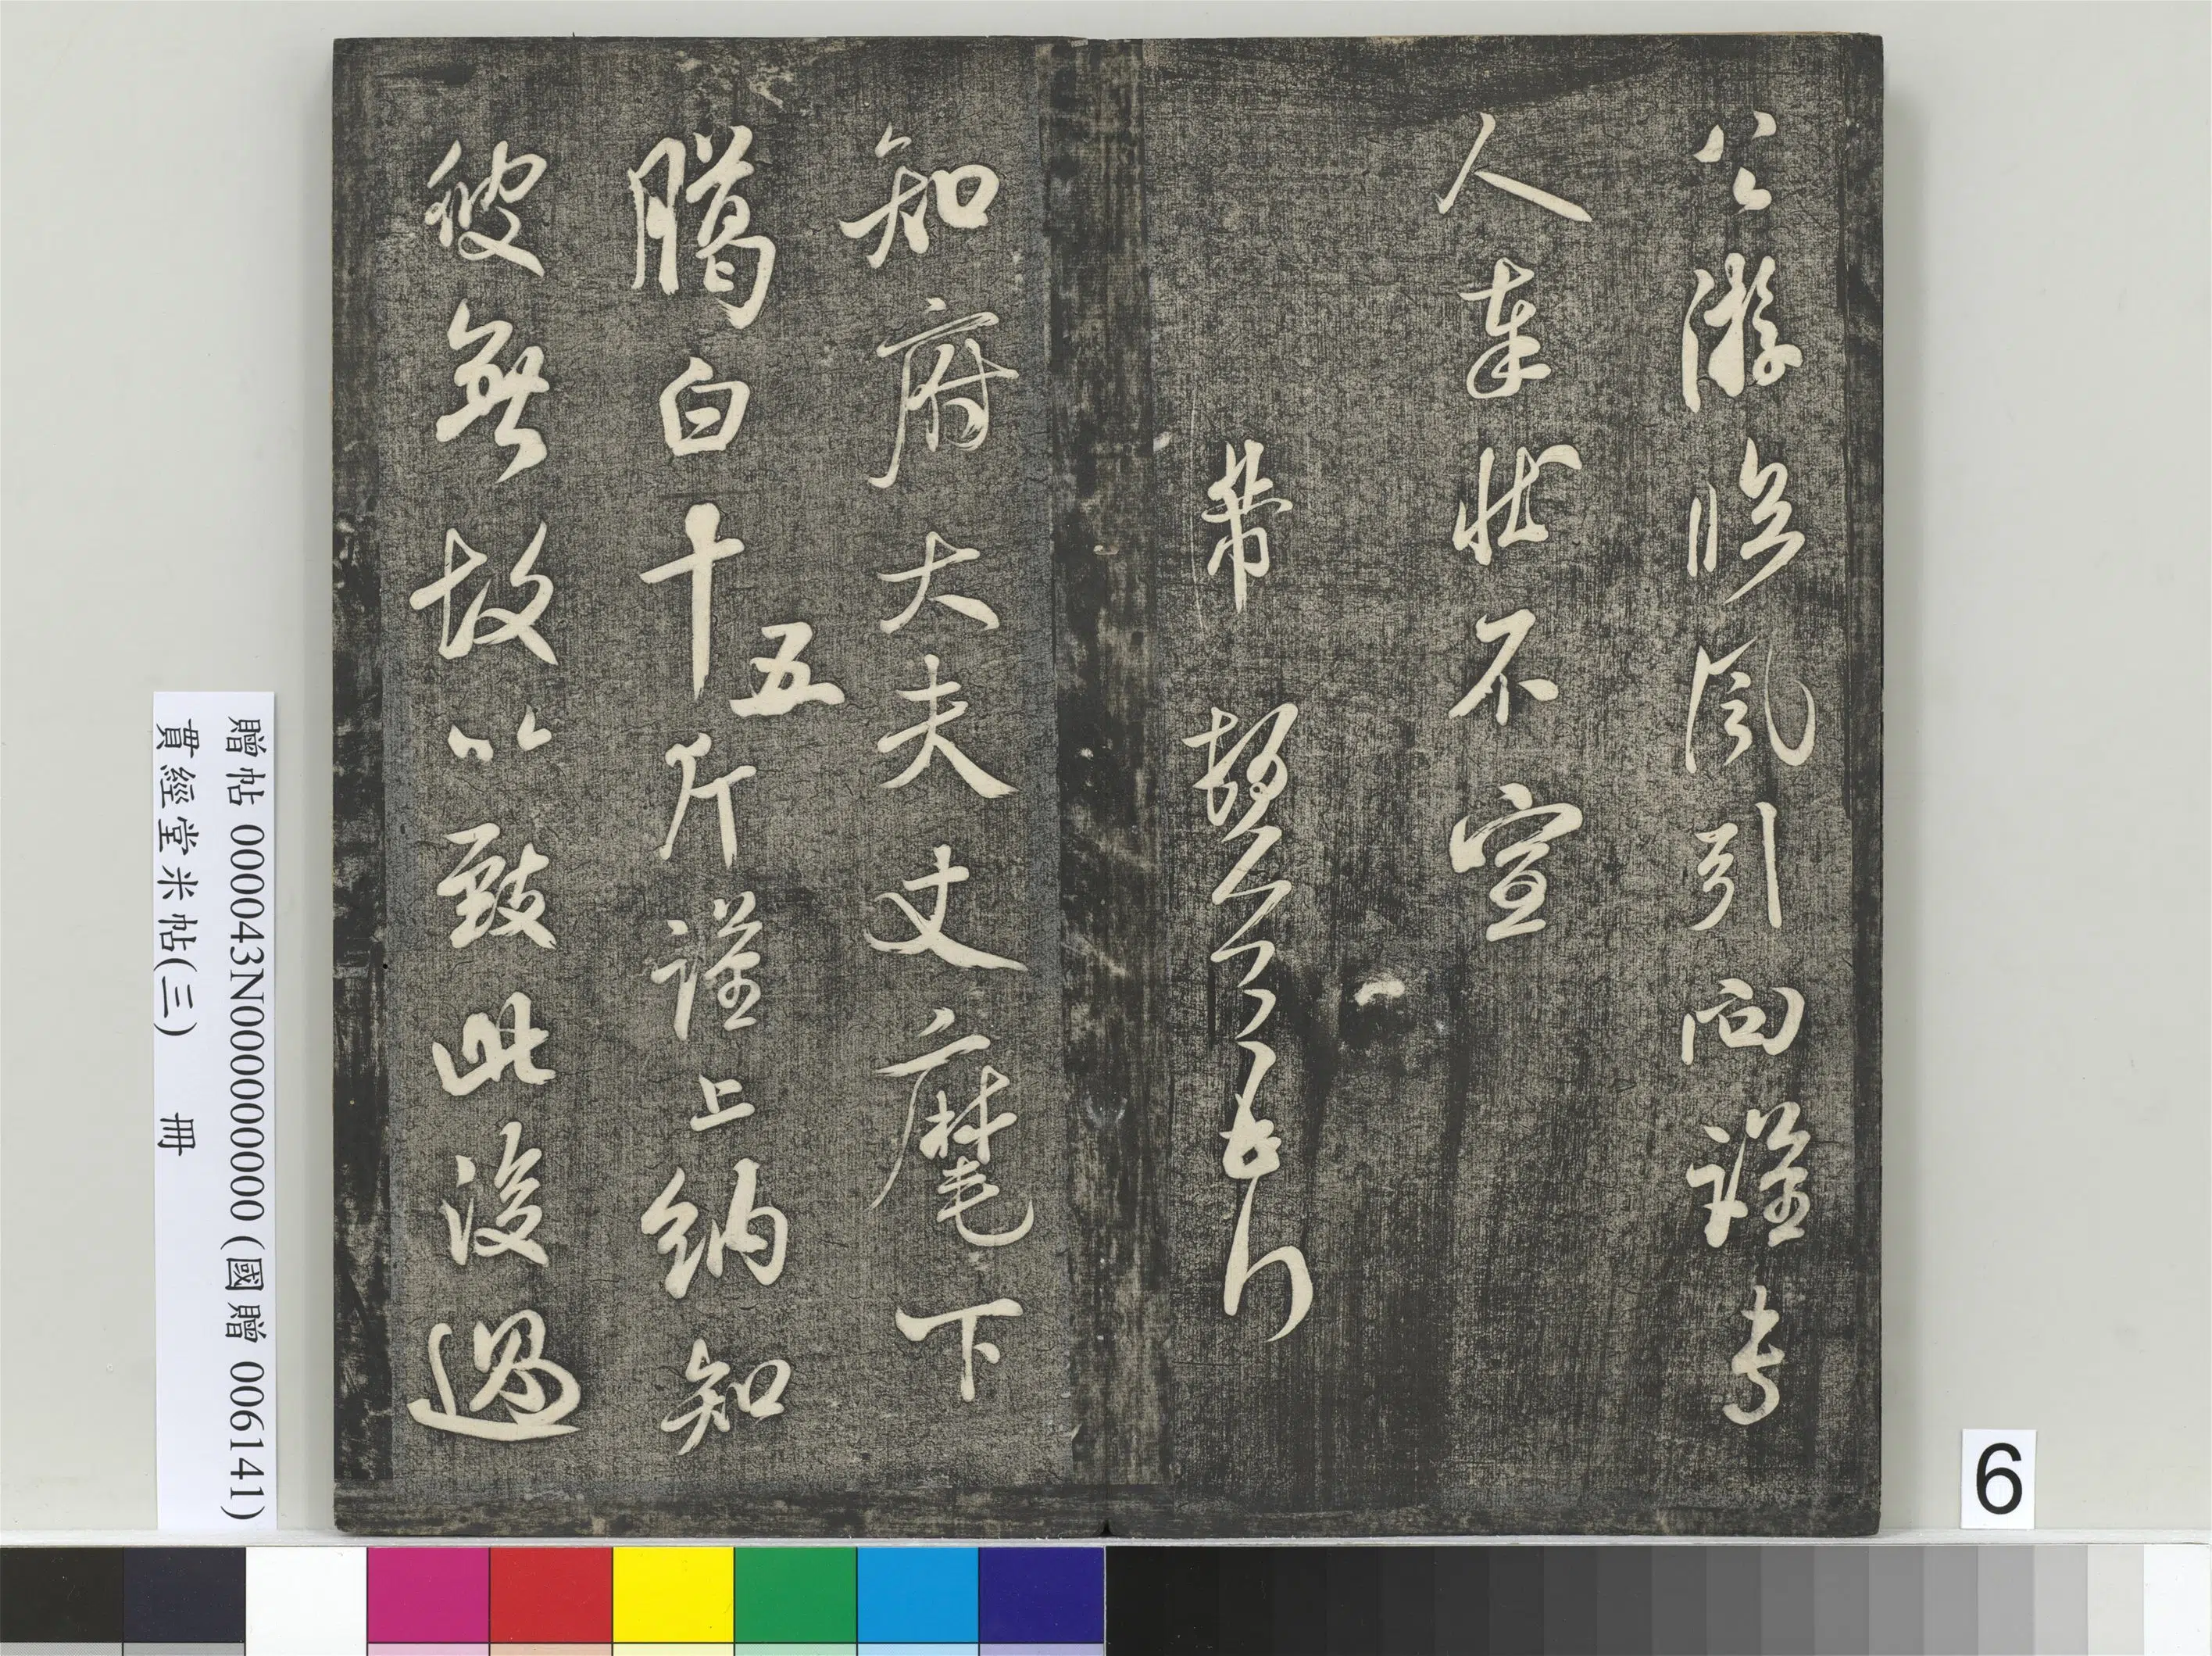 公游臨風引向謹專
人奉狀不宣
芾 頓首
知府大夫丈麾下
臈白十五斤謹上納知
彼無故以致此後過
贈帖 000043N000000000 (國贈 006141)
貫經堂米帖(三) 冊
6